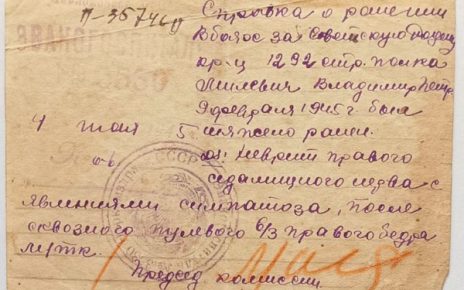 П-35746п
Справка о ранении
В боях за Советскую Родину
кр-ц 1292 стр. полка
Владимир Петр
9 февраля 1945 г. был
4 мая 5 тяжело ранен
неврит правого
седалищного нерва с
явлениями симпатоза, после
сквозного пулевого б/з правого бедра
Председ комиссии
СССР